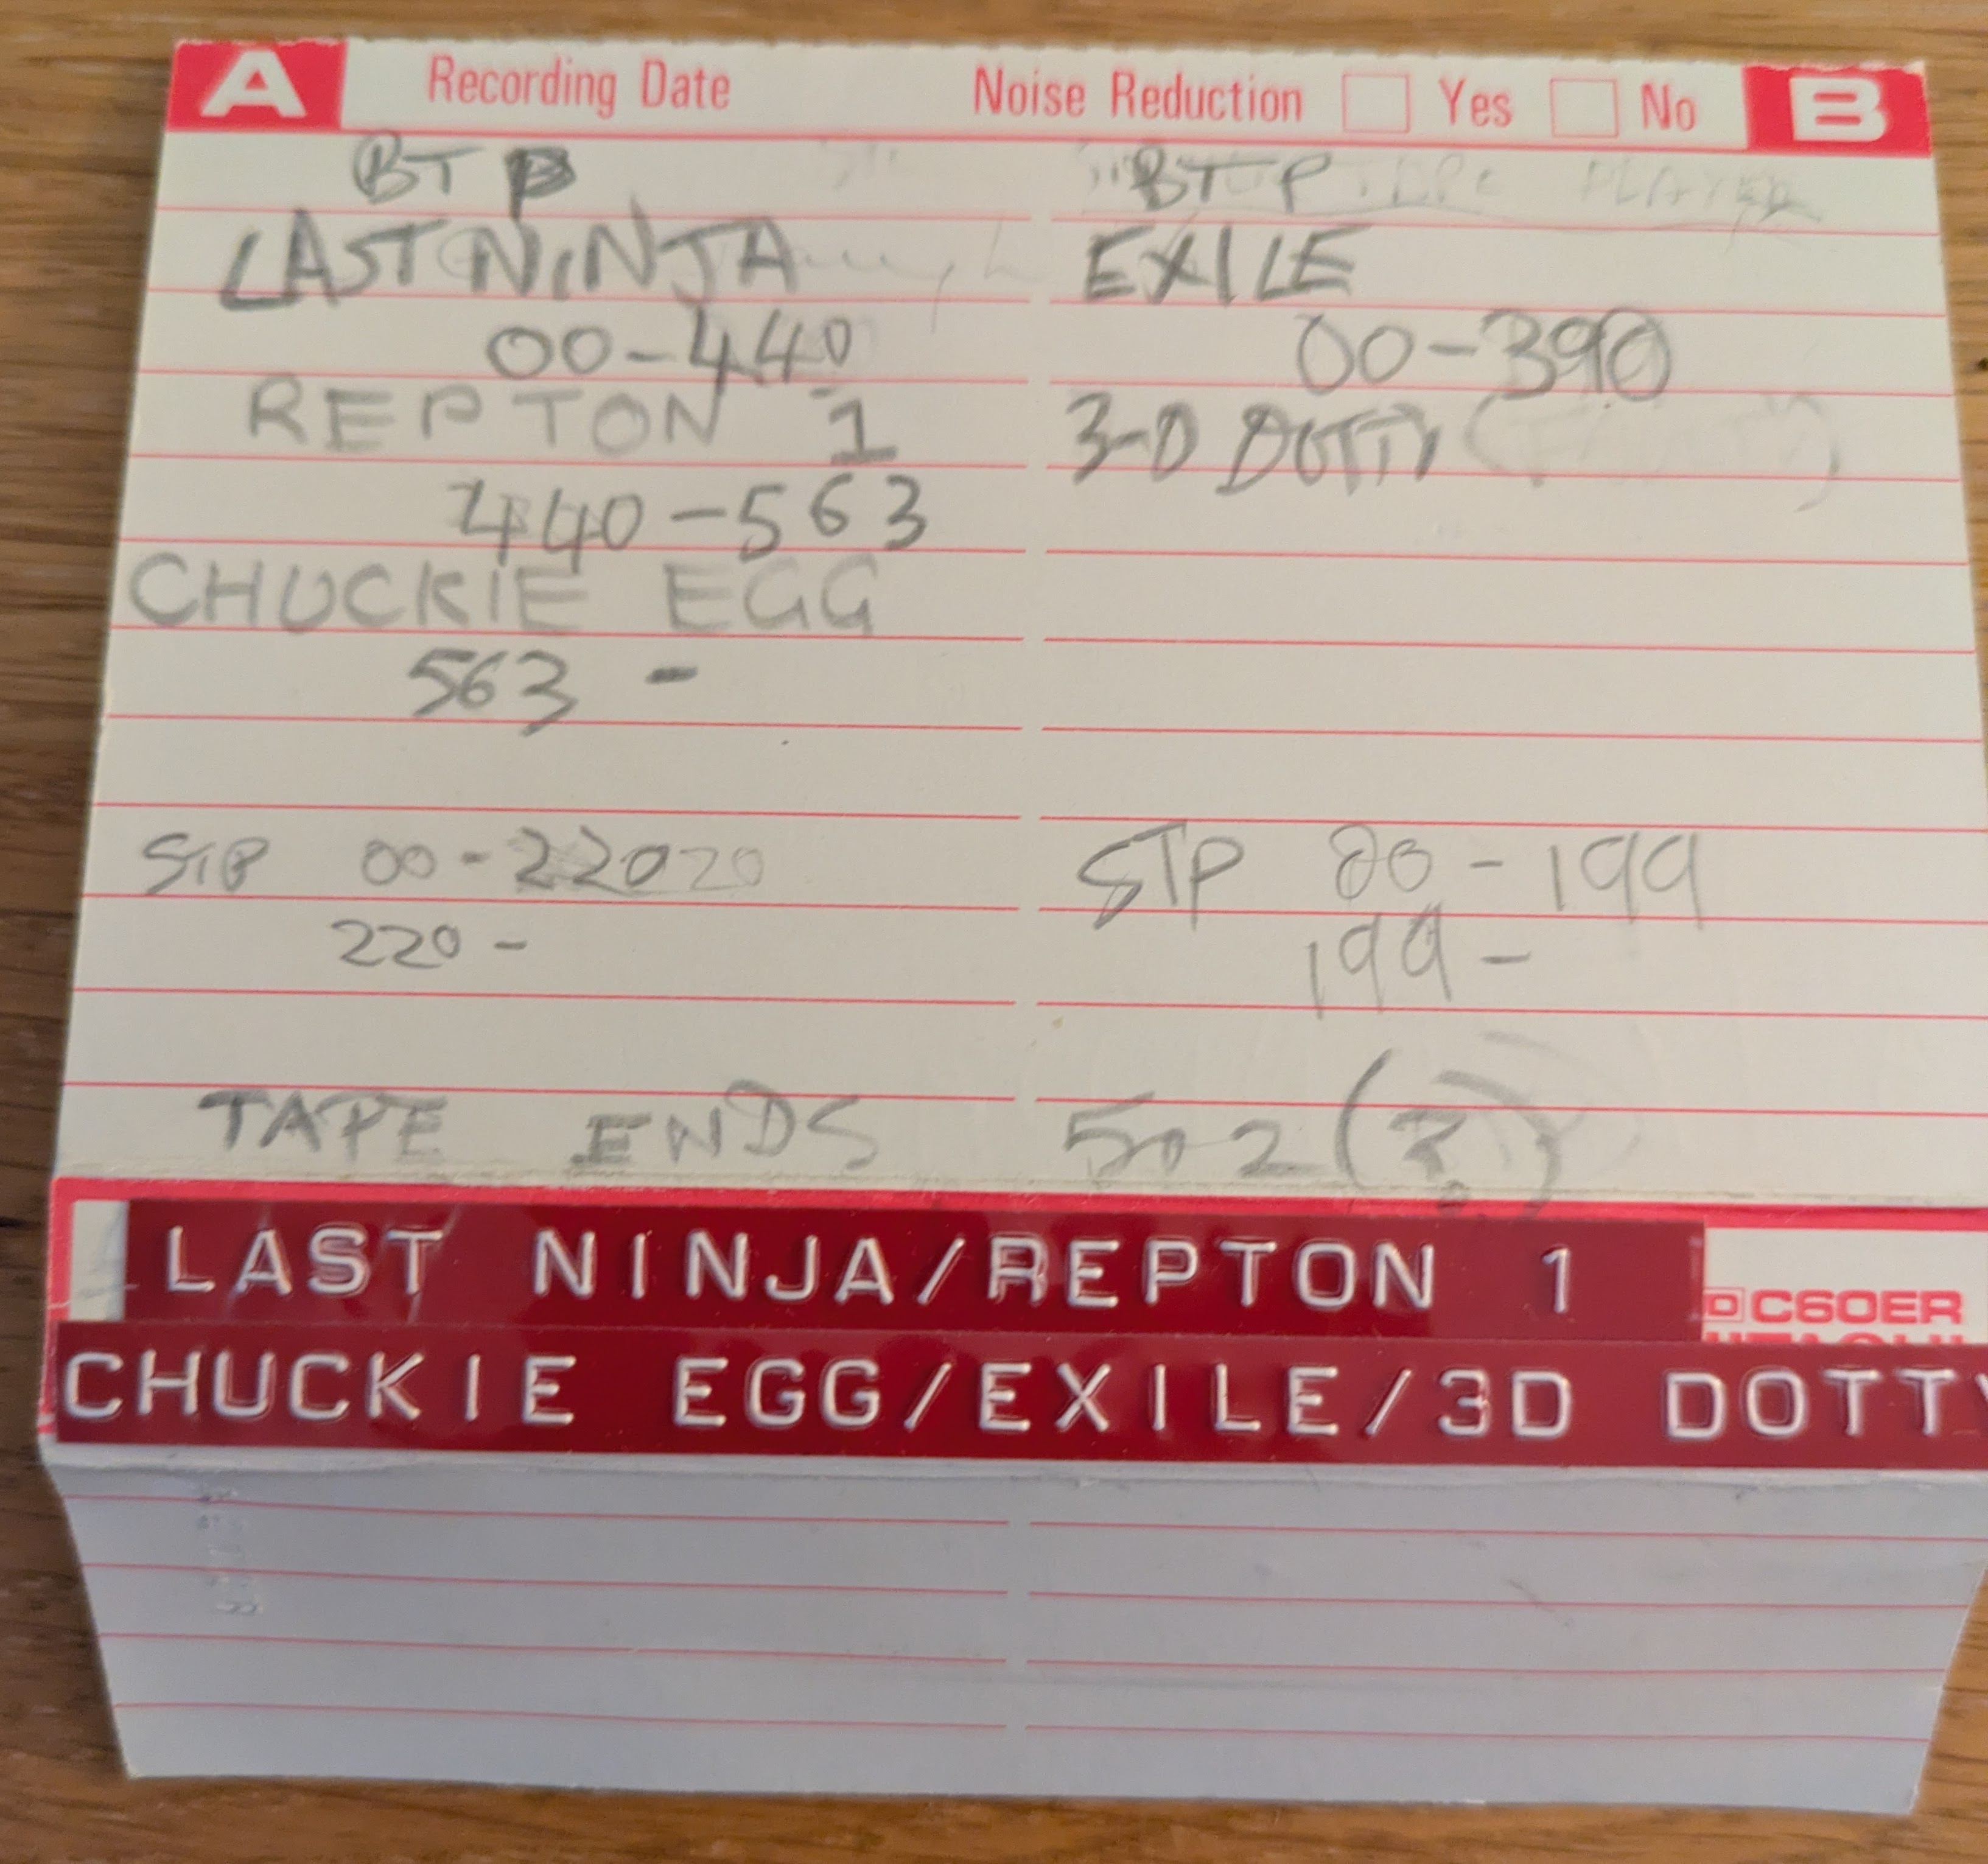 A Recording Date Noise Reduction Yes No B
BTP
LAST NINJA
00-440
REPTON 1
440-563
CHUCKIE EGG
563 -
STP 00-220 20
220 -
BTP PLAYER
EXILE
00-390
3-D DOTTY
STP 00-199
199-
TAPE ENDS 502 (?)
LAST NINJA/REPTON 1
C60ER
CHUCKIE EGG/EXILE/3D DOTTY